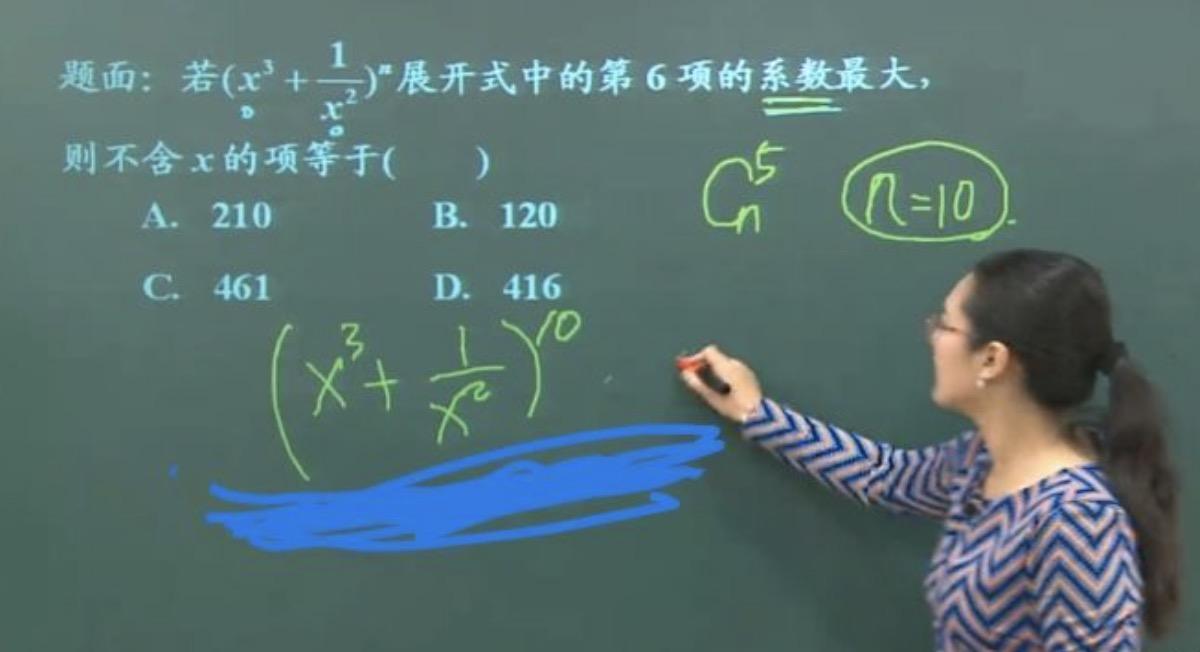 题面：若(x³+1/x²)ⁿ展开式中的第6项的系数最大，
则不含x的项等于(　　)
A. 210　B. 120
C. 461　D. 416
C_n^5　n=10.
(x³+1/x²)^10